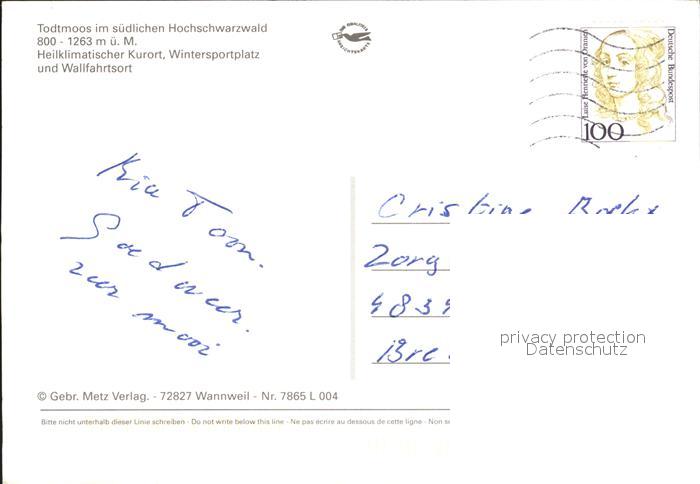 Todtmoos im südlichen Hochschwarzwald
800 - 1263 m ü. M.
Heilklimatischer Kurort, Wintersportplatz
und Wallfahrtsort
Luise Henriette von Oranien
Deutsche Bundespost
100
Ria Tom.
zeer mooi
Cris
Zorg
4834
Bre
privacy protection
Datenschutz
© Gebr. Metz Verlag. - 72827 Wannweil - Nr. 7865 L 004
Bitte nicht unterhalb dieser Linie schreiben - Do not write below this line - Ne pas écrire au dessous de cette ligne - Non